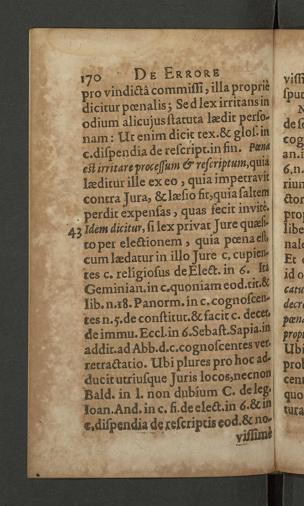 170 DE ERRORE
pro vindictâ commissi, illa propriè
dicitur pœnalis; Sed lex irritans in
odium alicujus statuta lædit perso-
nam: Ut enim dicit tex. & glos. in
c. dispendia de rescript. in fin. Pœna
est irritare processum & rescriptum, quia
læditur ille ex eo, quia impetravit
contra Jura, & læsio fit, quia saltem
perdit expensas, quas fecit invitè.
43 Idem dicitur, si lex privat Jure quæsi-
to per electionem, quia pœna est,
cum lædatur in illo Jure c. cupien-
tes c. religiosus de Elect. in 6. Ita
Geminian. in c. quoniam eod. tit. &
lib. n. 18. Panorm. in c. cognoscen-
tes n. 5. de constitut. & facit c. decet
de immu. Eccl. in 6. Sebast. Sapia. in
addit. ad Abb. d. c. cognoscentes ver.
retractatio. Ubi plures pro hoc ad-
ducit utriusque Juris locos, necnon
Bald. in l. non dubium C. de leg.
Ioan. And. in c. fi. de elect. in 6. & in
c. dispendia de rescriptis eod. & no-
vissimè
vissi